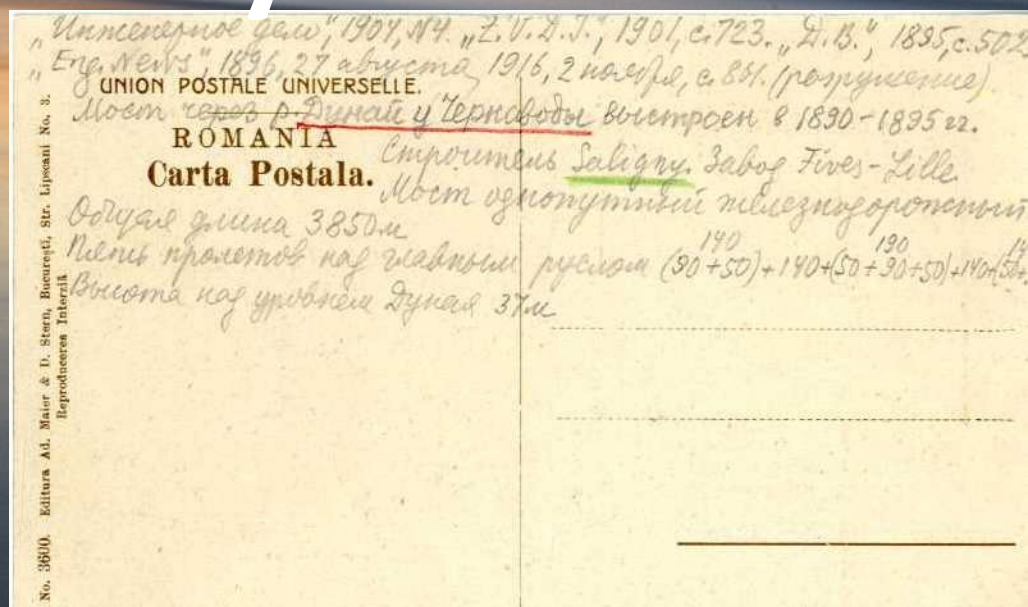 „Инженерное дело", 1904, N4. „Z.V.D.I.", 1901, с.723. „D.B.", 1895, с.502
„Eng. News", 1896, 27 августа, 1916, 2 ноября, с.851. (разрушение)
UNION POSTALE UNIVERSELLE.
Мост через р. Дунай у Чернаводы выстроен в 1890-1895 гг.
ROMANIA
Строитель Saligny. Завод Fives-Lille
Carta Postala.
Мост однопутный железнодорожный
Общая длина 3850м
140 190 14
Пять пролетов над главным руслом (90+50)+140+(50+90+50)+140+(50+
Высота над уровнем Дуная 37м
No. 3600. Editura Ad. Maier & D. Stern, Bucuresti, Str. Lipscani No. 3.
Reproducerea Interzilă